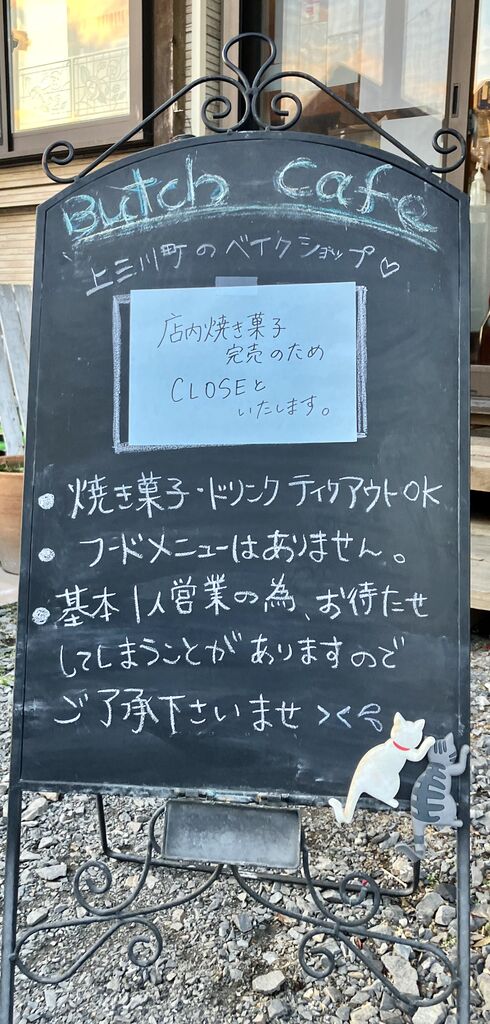 Butch Cafe
上三川町のベイクショップ♡
店内焼き菓子
完売のため
CLOSEと
いたします。
● 焼き菓子・ドリンク ティクアウトOK
● フードメニューはありません。
● 基本1人営業の為、お待たせ
してしまうことがありますので
ご了承下さいませ ><💦